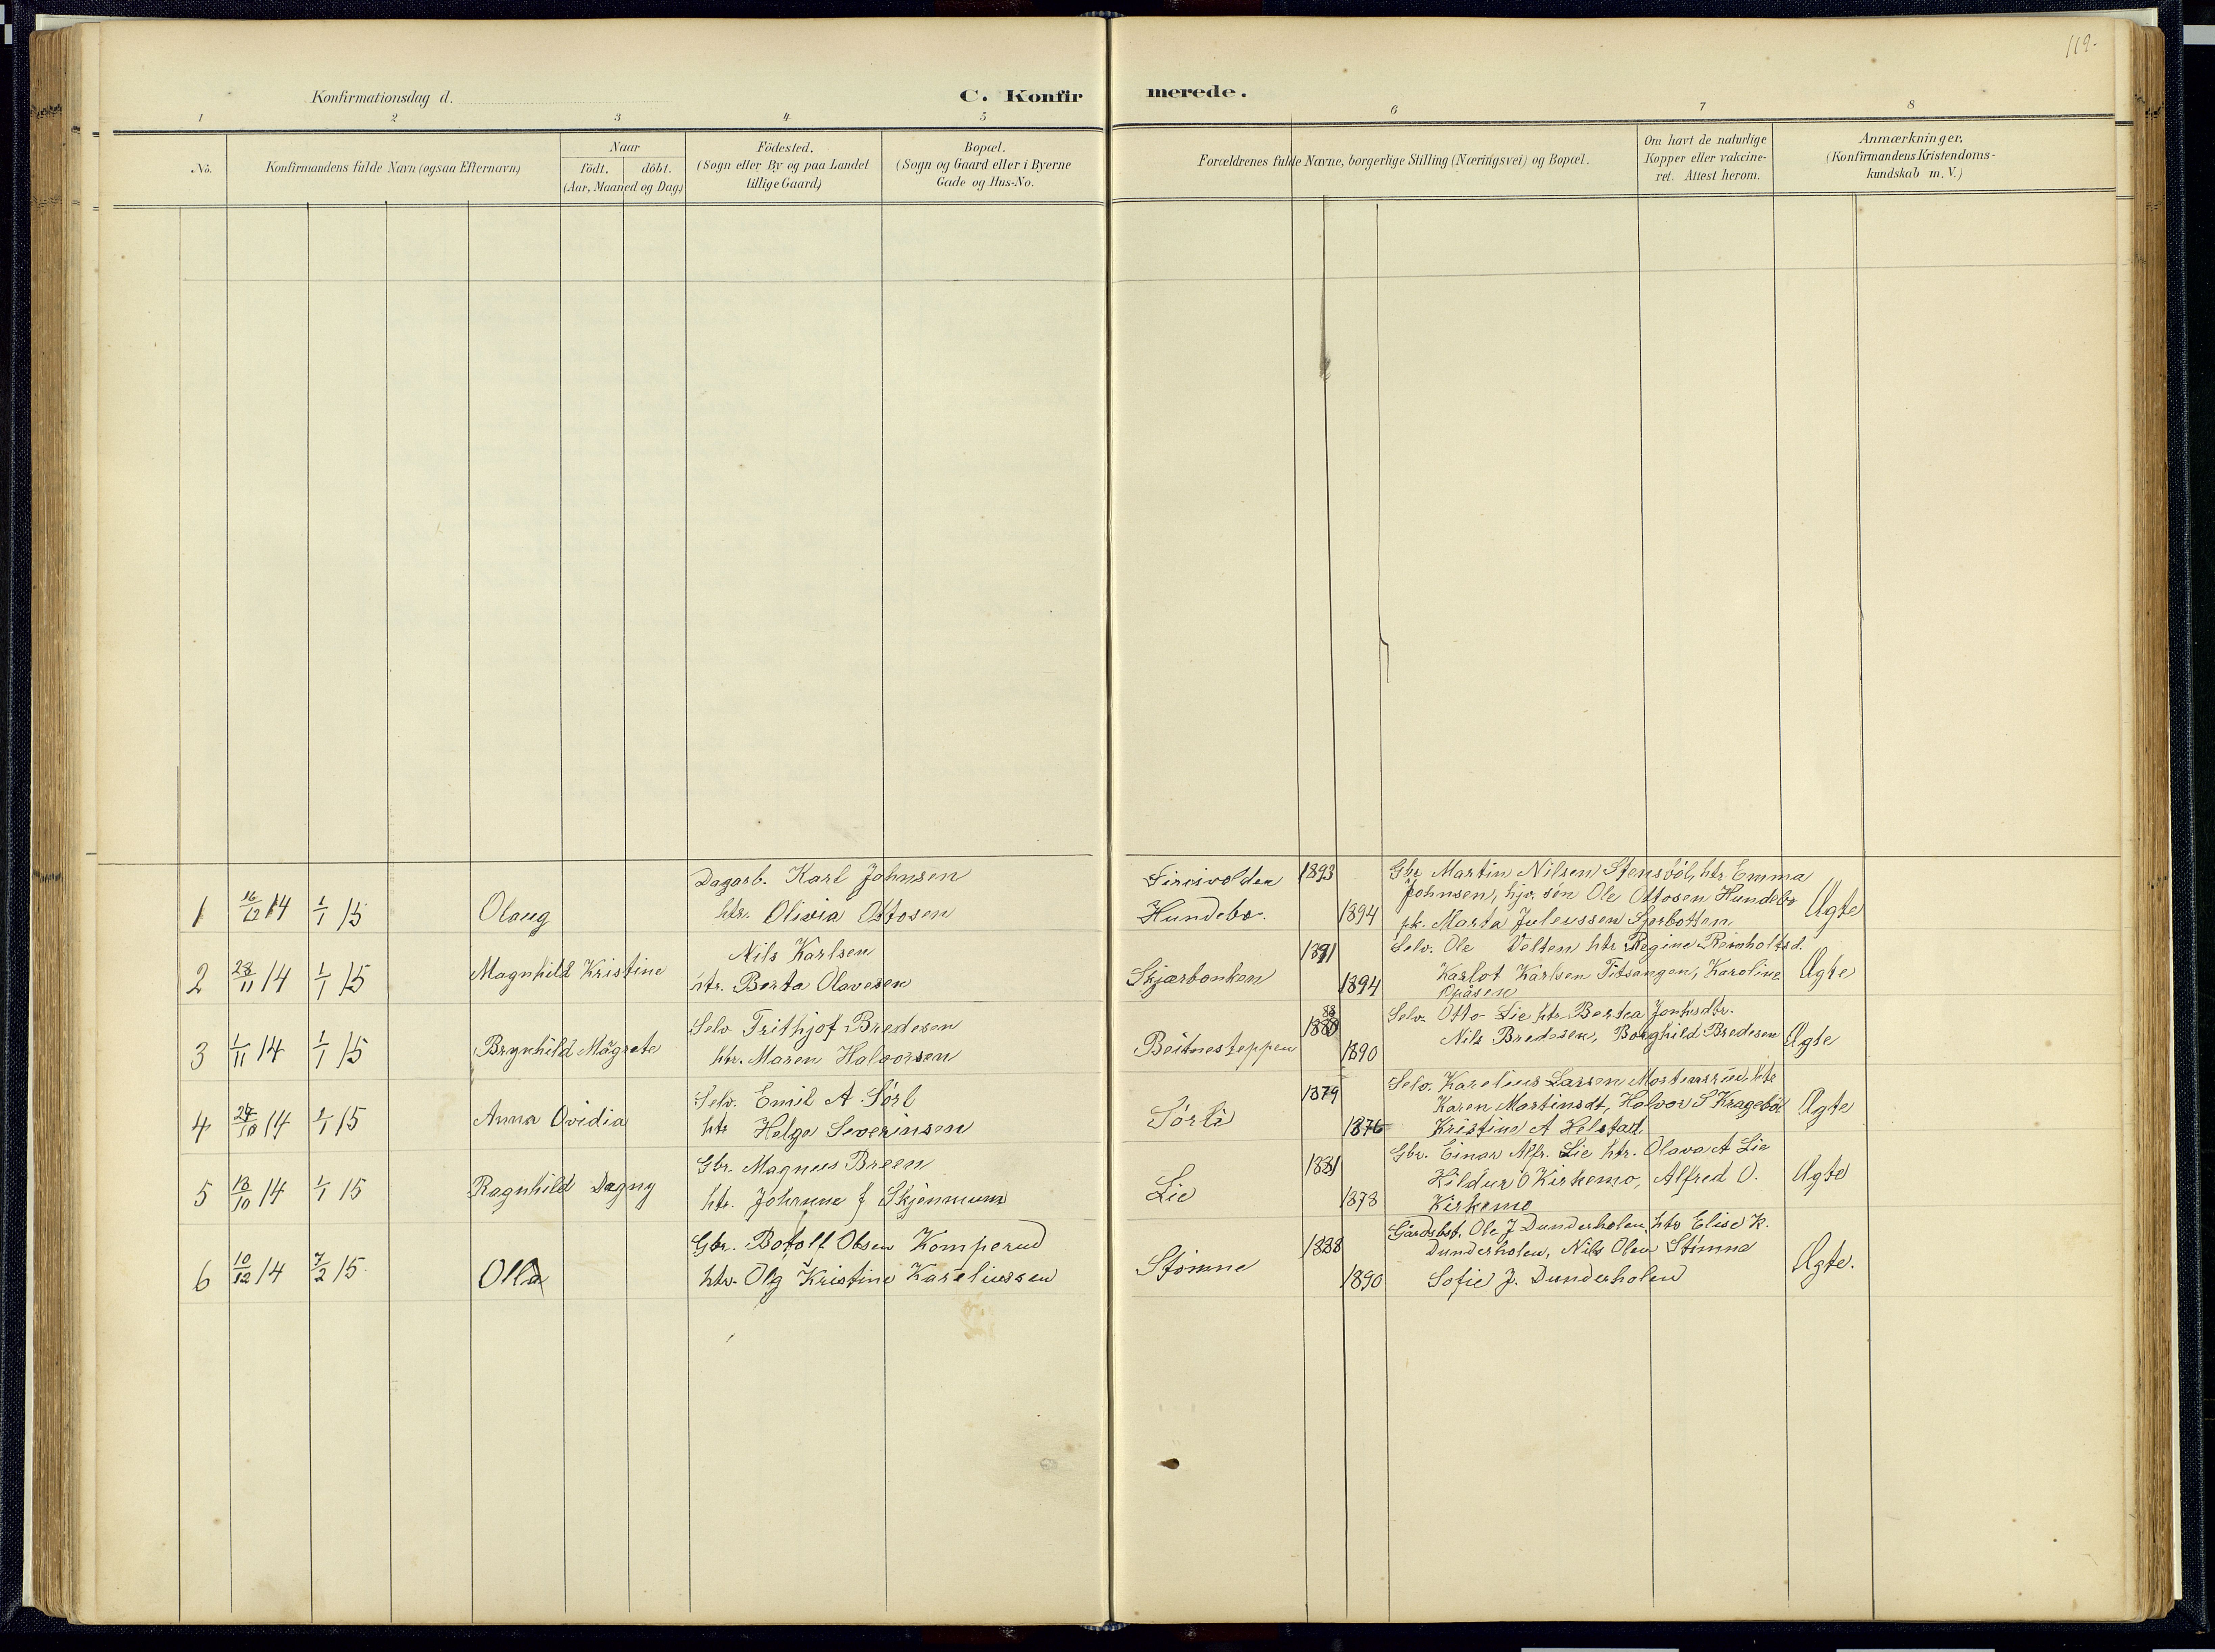 119-
Konfirmationsdag d.
C. Konfirmerede.
1 2 3 4 5 6 7 8
No.
Konfirmandens fulde Navn (ogsaa Efternavn)
Naar
födt. döbt.
(Aar, Maaned og Dag)
Födested.
(Sogn eller By og paa Landet
tillige Gaard)
Bopæl.
(Sogn og Gaard eller i Byerne
Gade og Hus-No.
Forældrenes fulde Navne, borgerlige Stilling (Næringsvei) og Bopæl.
Om havt de naturlige
Kopper eller vakcine-
ret. Attest herom.
Anmærkninger.
(Konfirmandens Kristendoms-
kundskab m. V.)
1 16/12 14 1/1 15 Olaug
Dagarb. Karl Johnsen
htr. Olivia Ottosen
Hundebo.
1893
1894
Gbr Martin Nilsen Stensvöl, htr Emma
Johnsen, hjv. sön Ole Ottosen Hundebo
pk. Marta Juleussen
Ægte
2 28/11 14 1/1 15 Magnhild Kristine
Nils Karlsen
htr. Berta Olavesen
Skjærbonken
1891
1894
Selv. Ole Velten htr Regine Reinholtsd.
Karlot Karlsen Titsangen, Karoline
Opåsen
Ægte
3 1/11 14 1/1 15 Brynhild Magrete
Selv Frithjof Bredesen
htr. Maren Halvorsen
Beitnesteppen
88
1880
1890
Selv. Otto Lie htr Bertea
Nils Bredesen, Borghild Bredesen
Ægte
4 24/10 14 1/1 15 Anna Ovidia
Selv. Emil A. Sörl
htr Helga Severinsen
Sörli
1879
1876
Selv. Karelius Larsen Mortensrud, htr
Karen Martinsdt, Halvor S Krageböl
Kristine A Helstad
Ægte
5 18/10 14 1/1 15 Ragnhild Dagny
Gbr. Magnus Breen
htr. Johanne J Skjønmum
Lie
1881
1878
Gbr. Einar Alfr. Lie htr. Olava A Lie
Hildur O Kirkemo, Alfred O.
Kirkemo
Ægte
6 10/12 14 7/2 15. Olla
Gbr. Botolf Olsen Komperud
htr. Olg Kristine Kareliussen
Stömne
1888
1890
Gårdsbst. Ole J Dunderholen, htr Elise K.
Dunderholen, Nils Olen Stömne
Sofie J. Dunderholen
Ægte.